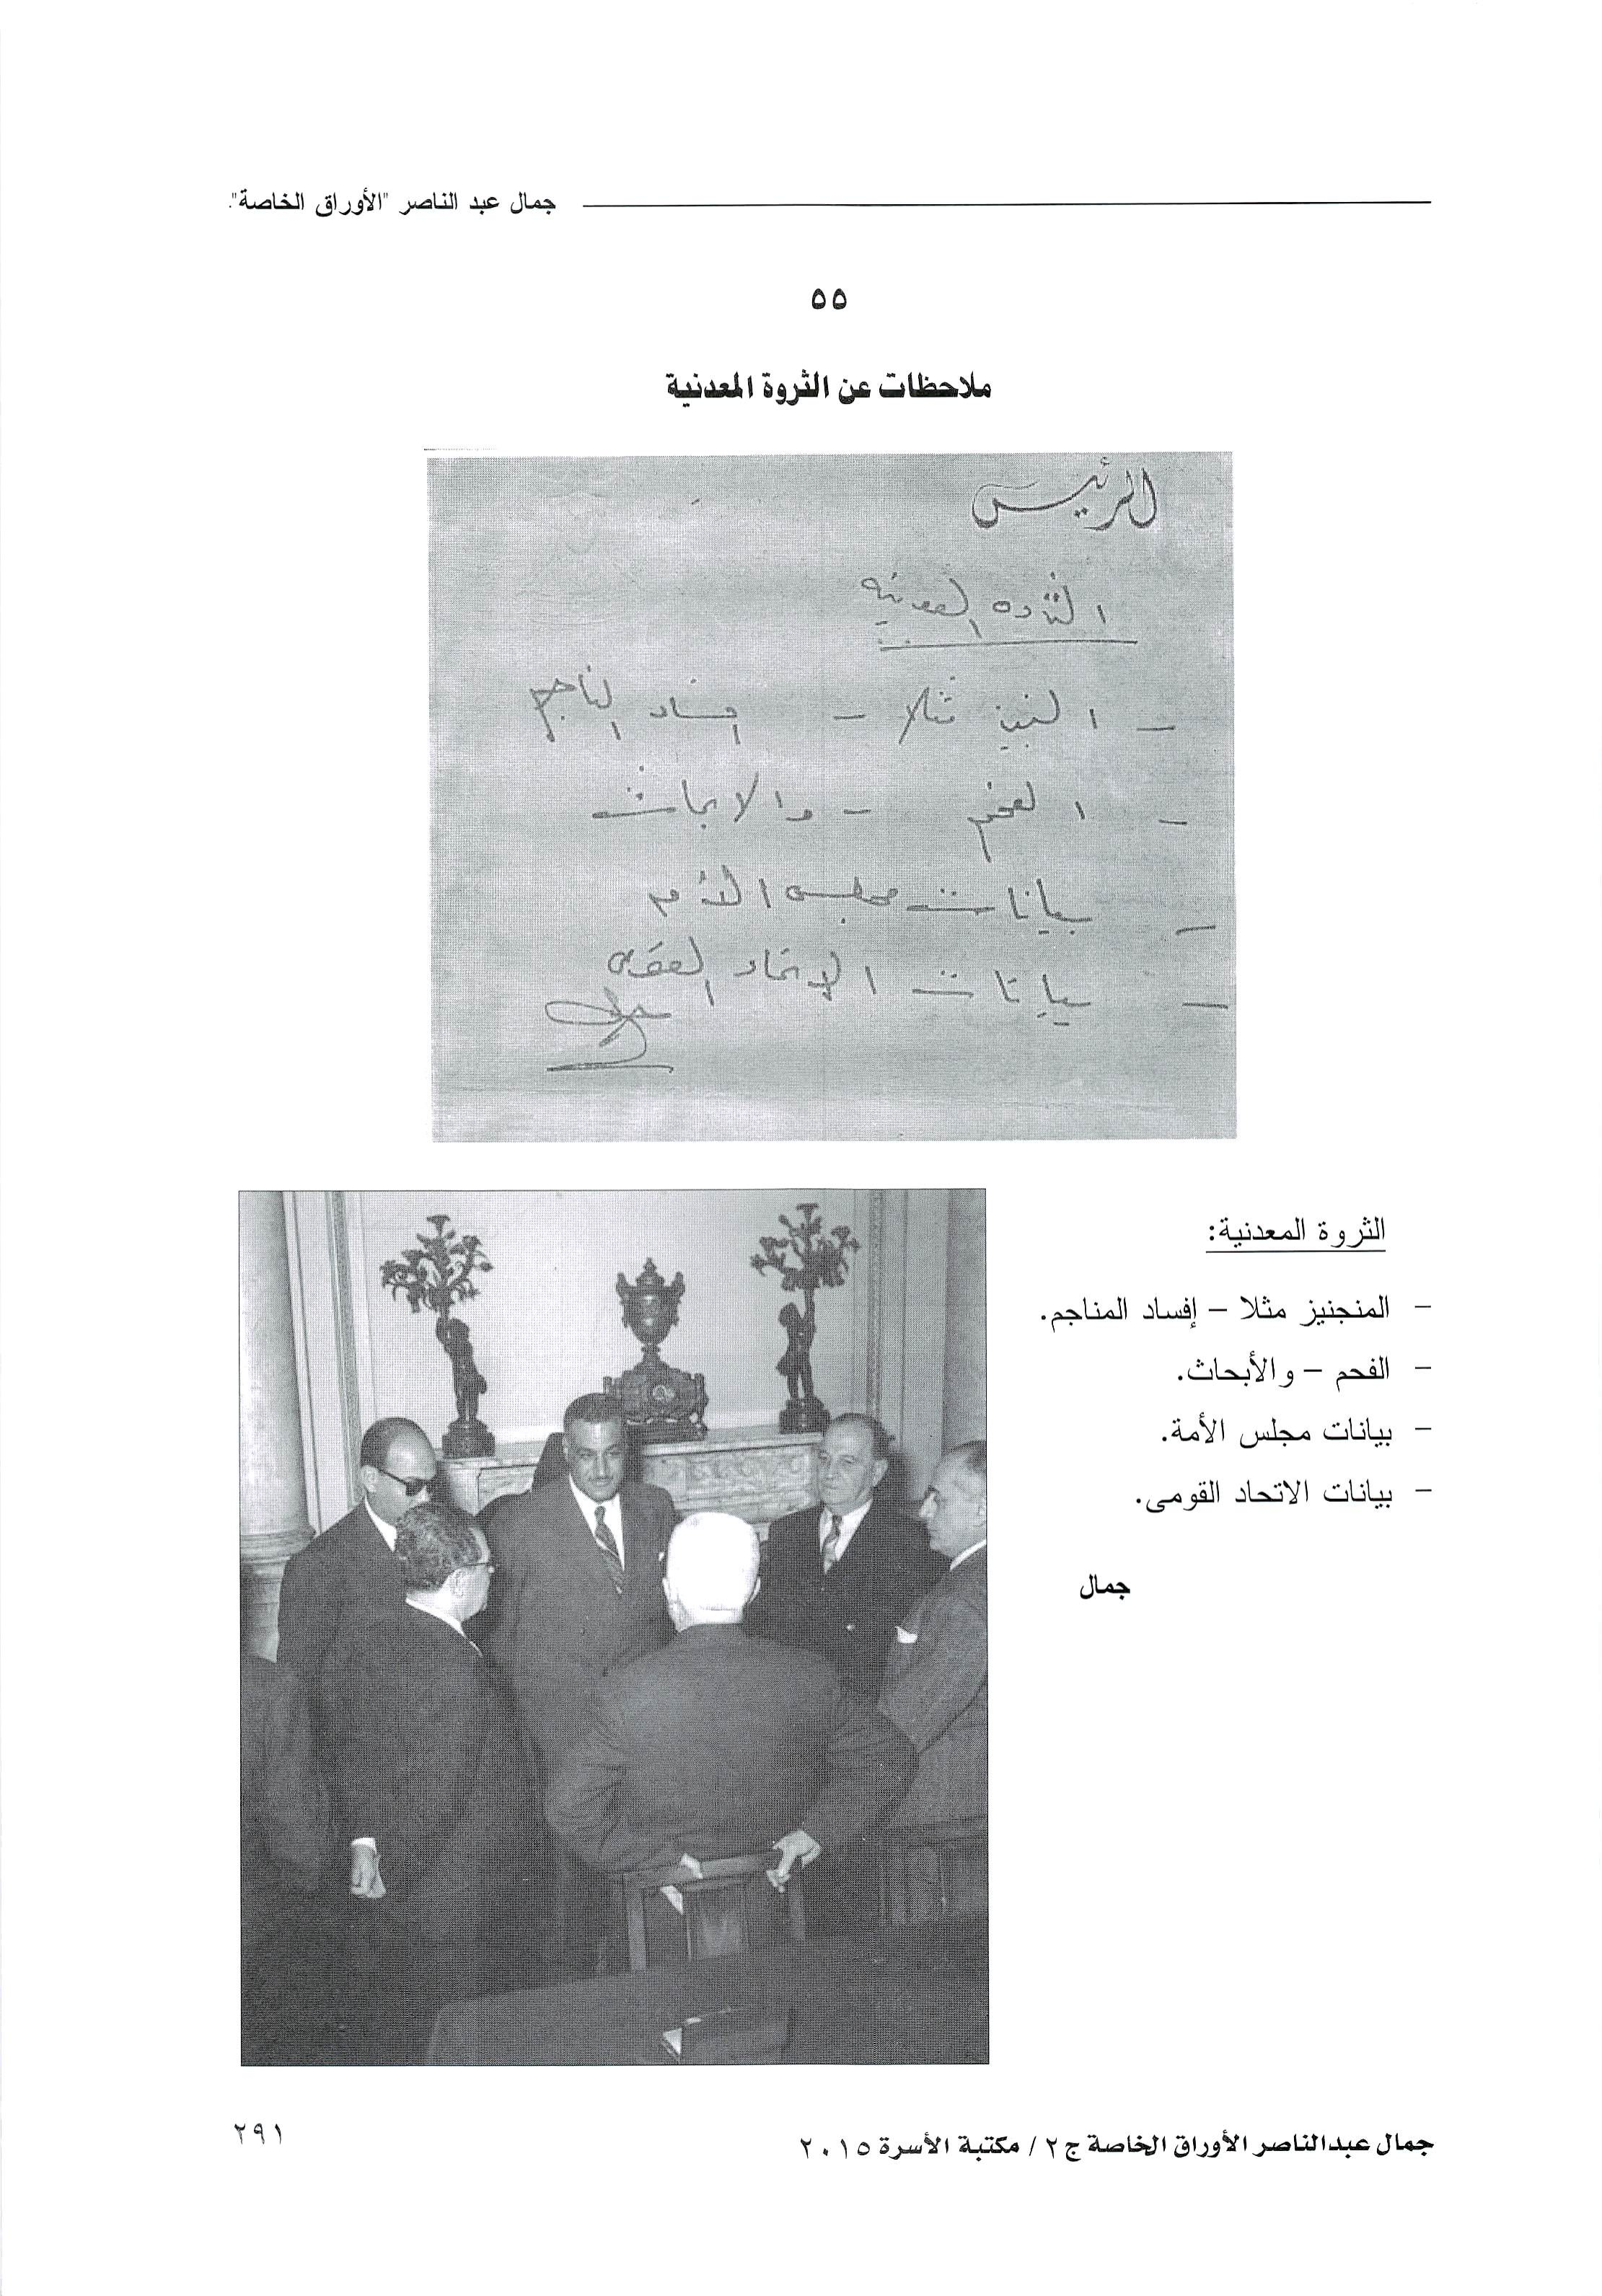 جمال عبد الناصر "الأوراق الخاصة".
٥٥
ملاحظات عن الثروة المعدنية
الرئيس
الثروه المعدنيه
– المنجنيز مثلا – افساد المناجم
– الفحم – والابحاث
– بيانات مجلس الأمه
– بيانات الاتحاد القومى
جمال
الثروة المعدنية:
– المنجنيز مثلا – إفساد المناجم.
– الفحم – والأبحاث.
– بيانات مجلس الأمة.
– بيانات الاتحاد القومى.
جمال
جمال عبدالناصر الأوراق الخاصة ج ٢ / مكتبة الأسرة ٢٠١٥
٢٩١